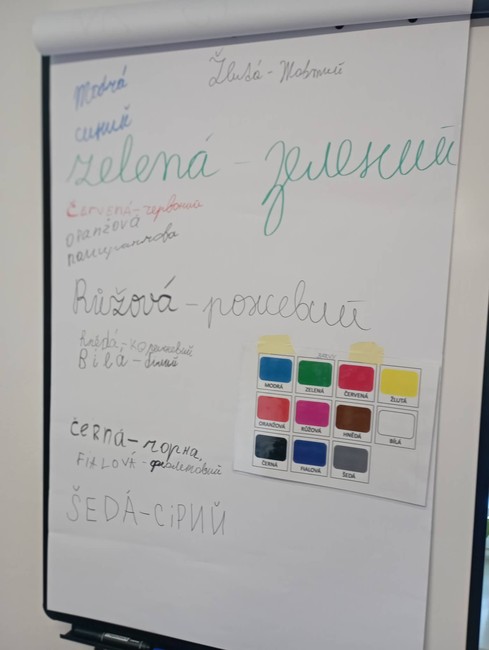 Modrá
синий
Žlutá - Жовтий
zelená - зелений
ČERVENÁ - червона
oranžová
помаранчова
Růžová - рожевий
hnědá - коричневий
Bílá - білий
ČERNÁ - чорна
FIALOVÁ - фіолетовий
ŠEDÁ - СІРИЙ
MODRÁ
ZELENÁ
ČERVENÁ
ŽLUTÁ
ORANŽOVÁ
RŮŽOVÁ
HNĚDÁ
BÍLÁ
ČERNÁ
FIALOVÁ
ŠEDÁ